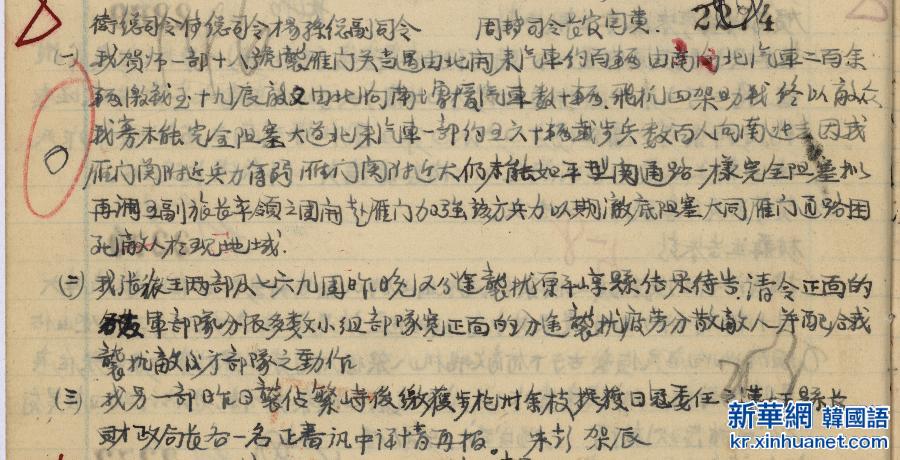 衛總司令傅總司令楊孫總副司令 周 司令長官閻黄 
(一)我贺师一部十八號襲雁门关当遇由北南来汽車约百辆由南向北汽車二百余
辆激战至十九辰敵又由北向南增援汽車数十辆飛机四架助战終以敵众
我寡未能完全阻塞大道北来汽車一部约五六十辆載步兵数百人向南逃去因我
雁门関附近兵力有弱雁门関附近大仍未能如平型関通路一樣完全阻塞拟
再調王副旅长率領之团開赴雁门加强該方兵力以期澈底阻塞大同雁门通路困
死敵人於現地域.
(二)我张旅王两部及七六九团昨晚又分途襲扰原平崞縣结果待告.請令正面的
軍部隊分派多数小组部隊完正面的分途襲扰疲劳分散敵人并配合我
襲扰敵後方部隊之動作
(三)我另一部昨日襲佔繁峙後繳獲步枪卅余枝捉獲日寇委任之 縣长
財政局长各一名正審讯中详情再报. 朱彭 架辰
新華網 韓國語
kr.xinhuanet.com